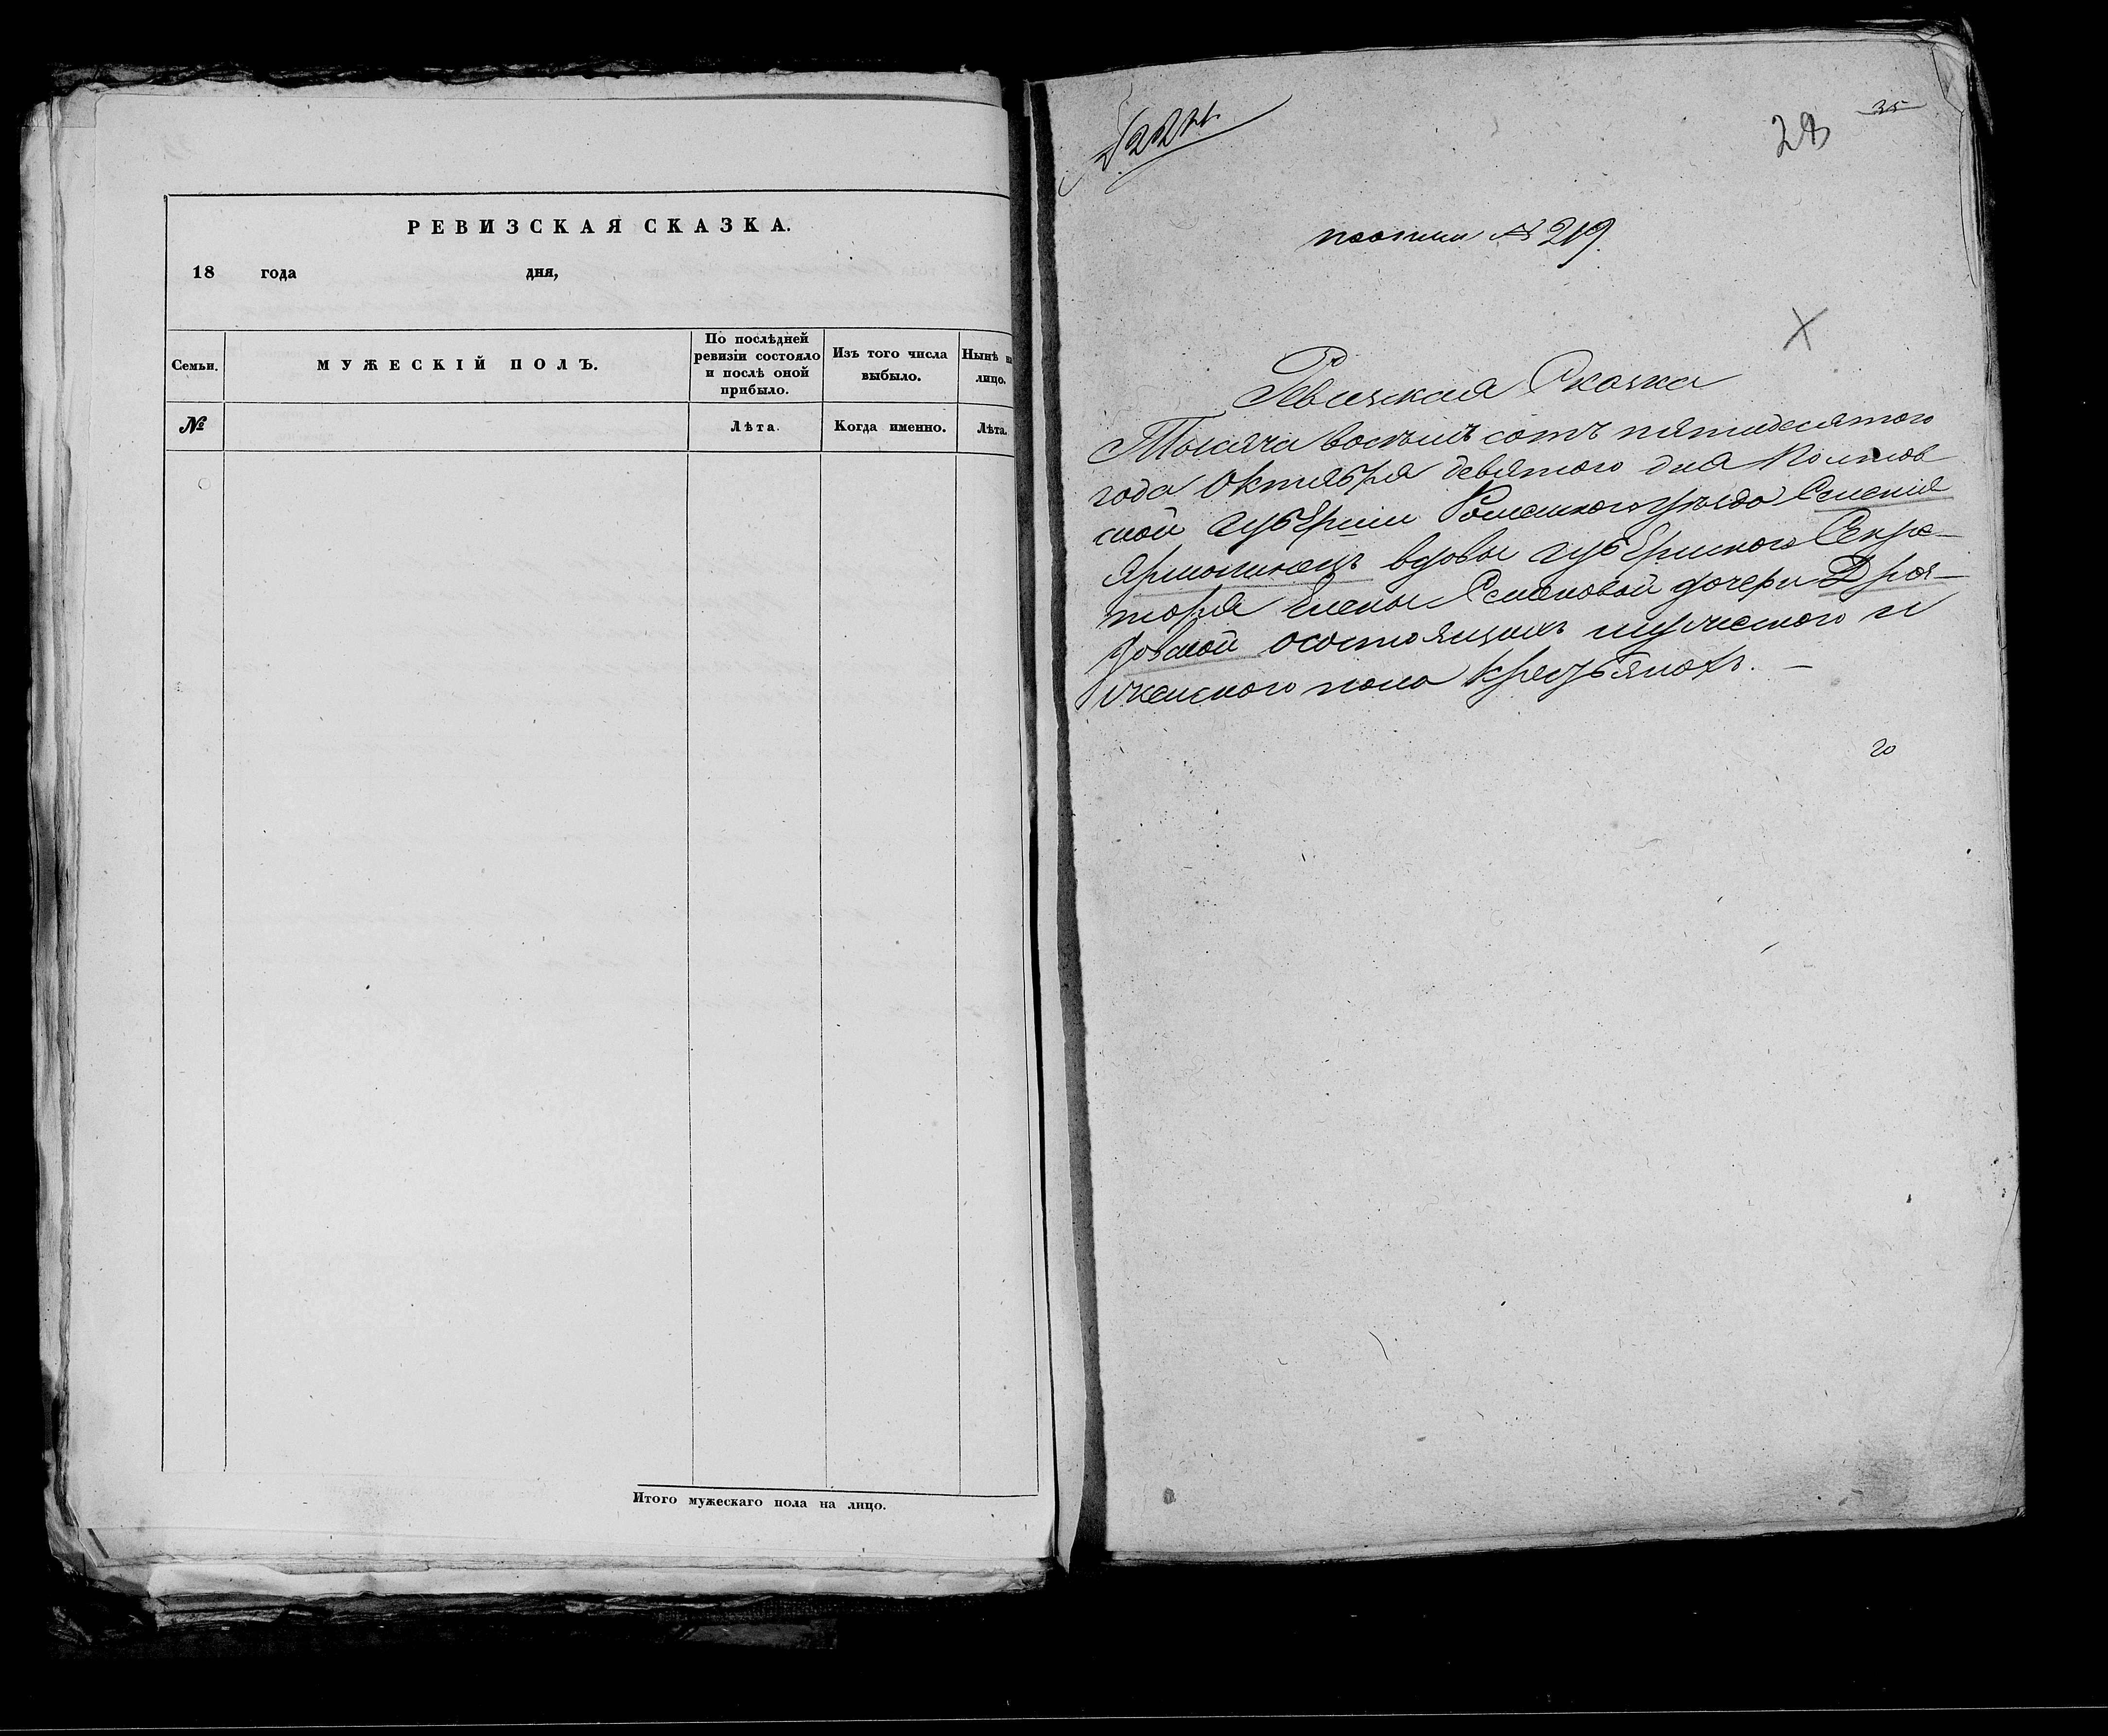 РЕВИЗСКАЯ СКАЗКА.
18 года дня,
Семьи. МУЖЕСКІЙ ПОЛЪ. По послѣдней ревизіи состояло и послѣ оной прибыло. Изъ того числа выбыло. Нынѣ на лицо.
№ Лѣта. Когда именно. Лѣта.
Итого мужескаго пола на лицо.
35
28
№ 219.
Ревизская Сказка
Тысяча восемь сотъ пятидесятого
года Октября девятого дня Полтов
ской губернии Роменского уезда Селения
Ярмолинецъ вдовы губернского Секре-
торя Елены Семеновой дочери
осостоящихъ мужеского и
женского пола крестьянахъ. —
20